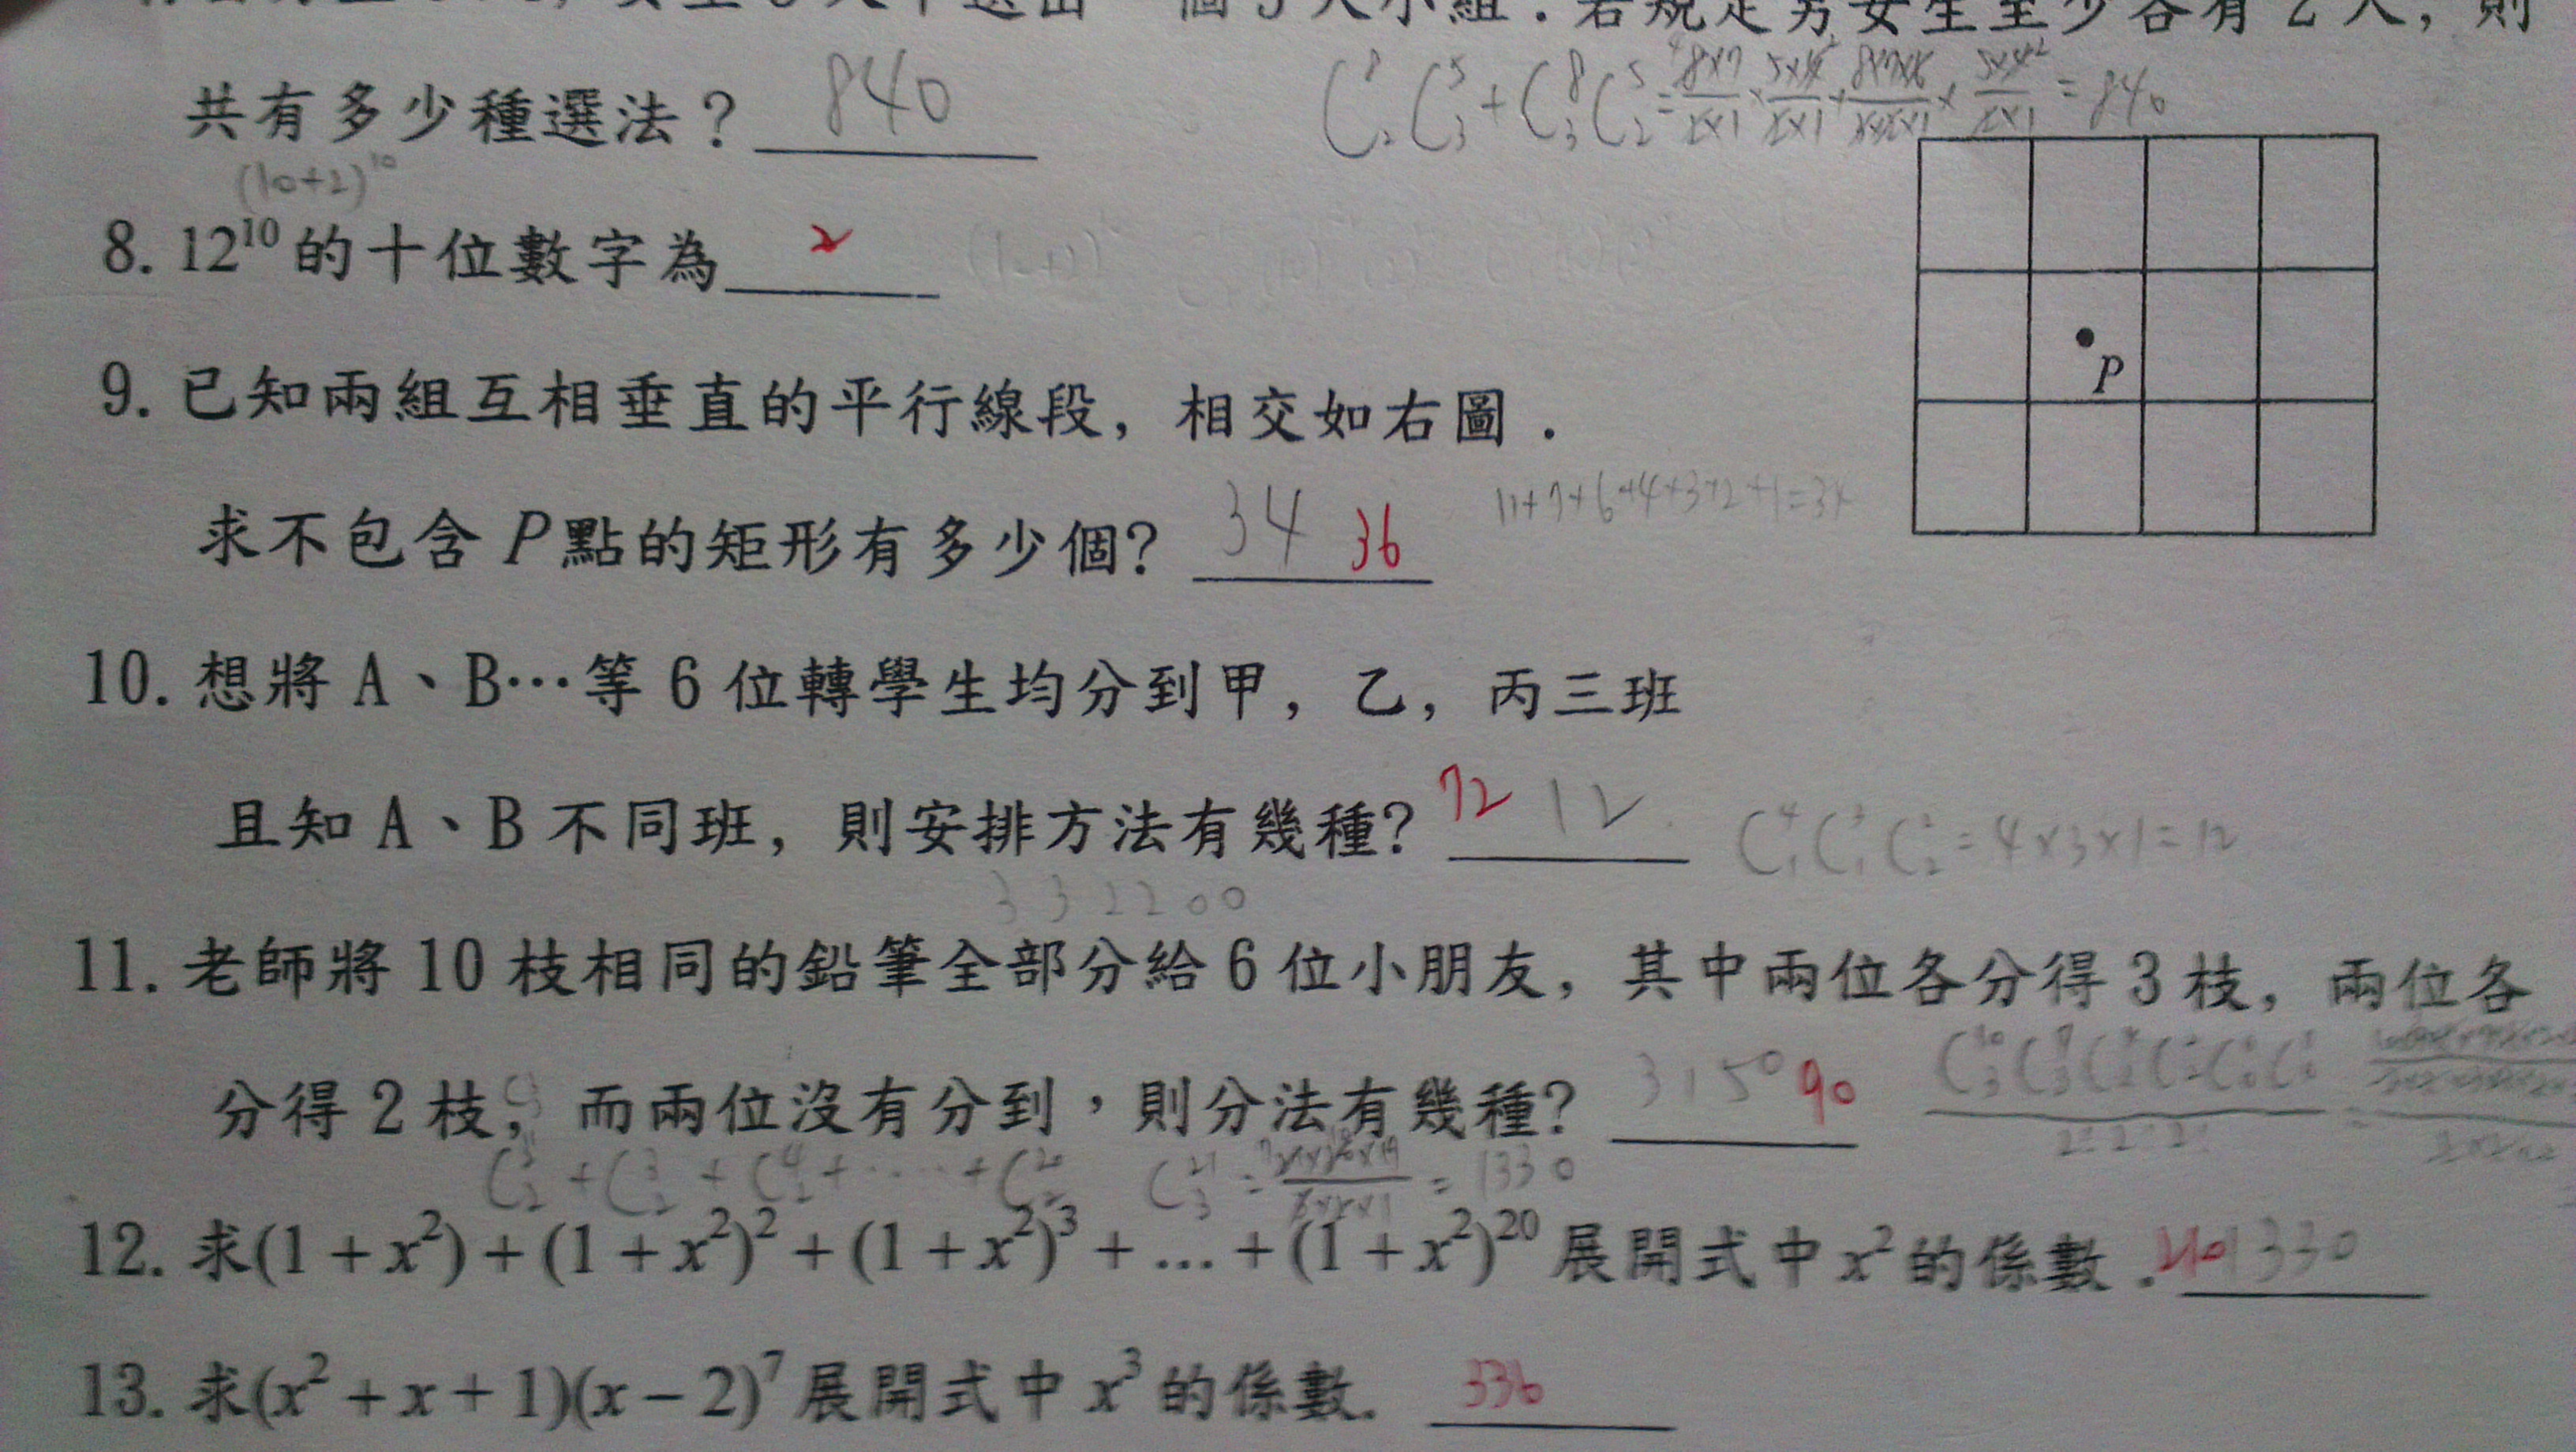 個5人小組.若規定男女生至少各有2人,則
共有多少種選法?840
C⁸₂C⁵₃+C⁸₃C⁵₂=8×7/2×1×5×4/2×1+8×7×6/3×2×1×5×4/2×1=840
(10+2)¹⁰
8. 12¹⁰的十位數字為 2
P
9. 已知兩組互相垂直的平行線段,相交如右圖.
求不包含P點的矩形有多少個? 34 36
11+7+6+4+3+2+1=34
10. 想將A、B…等6位轉學生均分到甲,乙,丙三班
且知A、B不同班,則安排方法有幾種? 72 12
C⁴₁C³₁C²₂=4×3×1=12
3 3 2 2 0 0
11. 老師將10枝相同的鉛筆全部分給6位小朋友,其中兩位各分得3枝,兩位各
分得2枝,而兩位沒有分到,則分法有幾種? 3150 90
C³₂+C⁴₂+……+C²⁰₂ C²¹₃= =1330
12. 求(1+x²)+(1+x²)²+(1+x²)³+...+(1+x²)²⁰展開式中x²的係數. 210 1330
13. 求(x²+x+1)(x-2)⁷展開式中x³的係數. 336